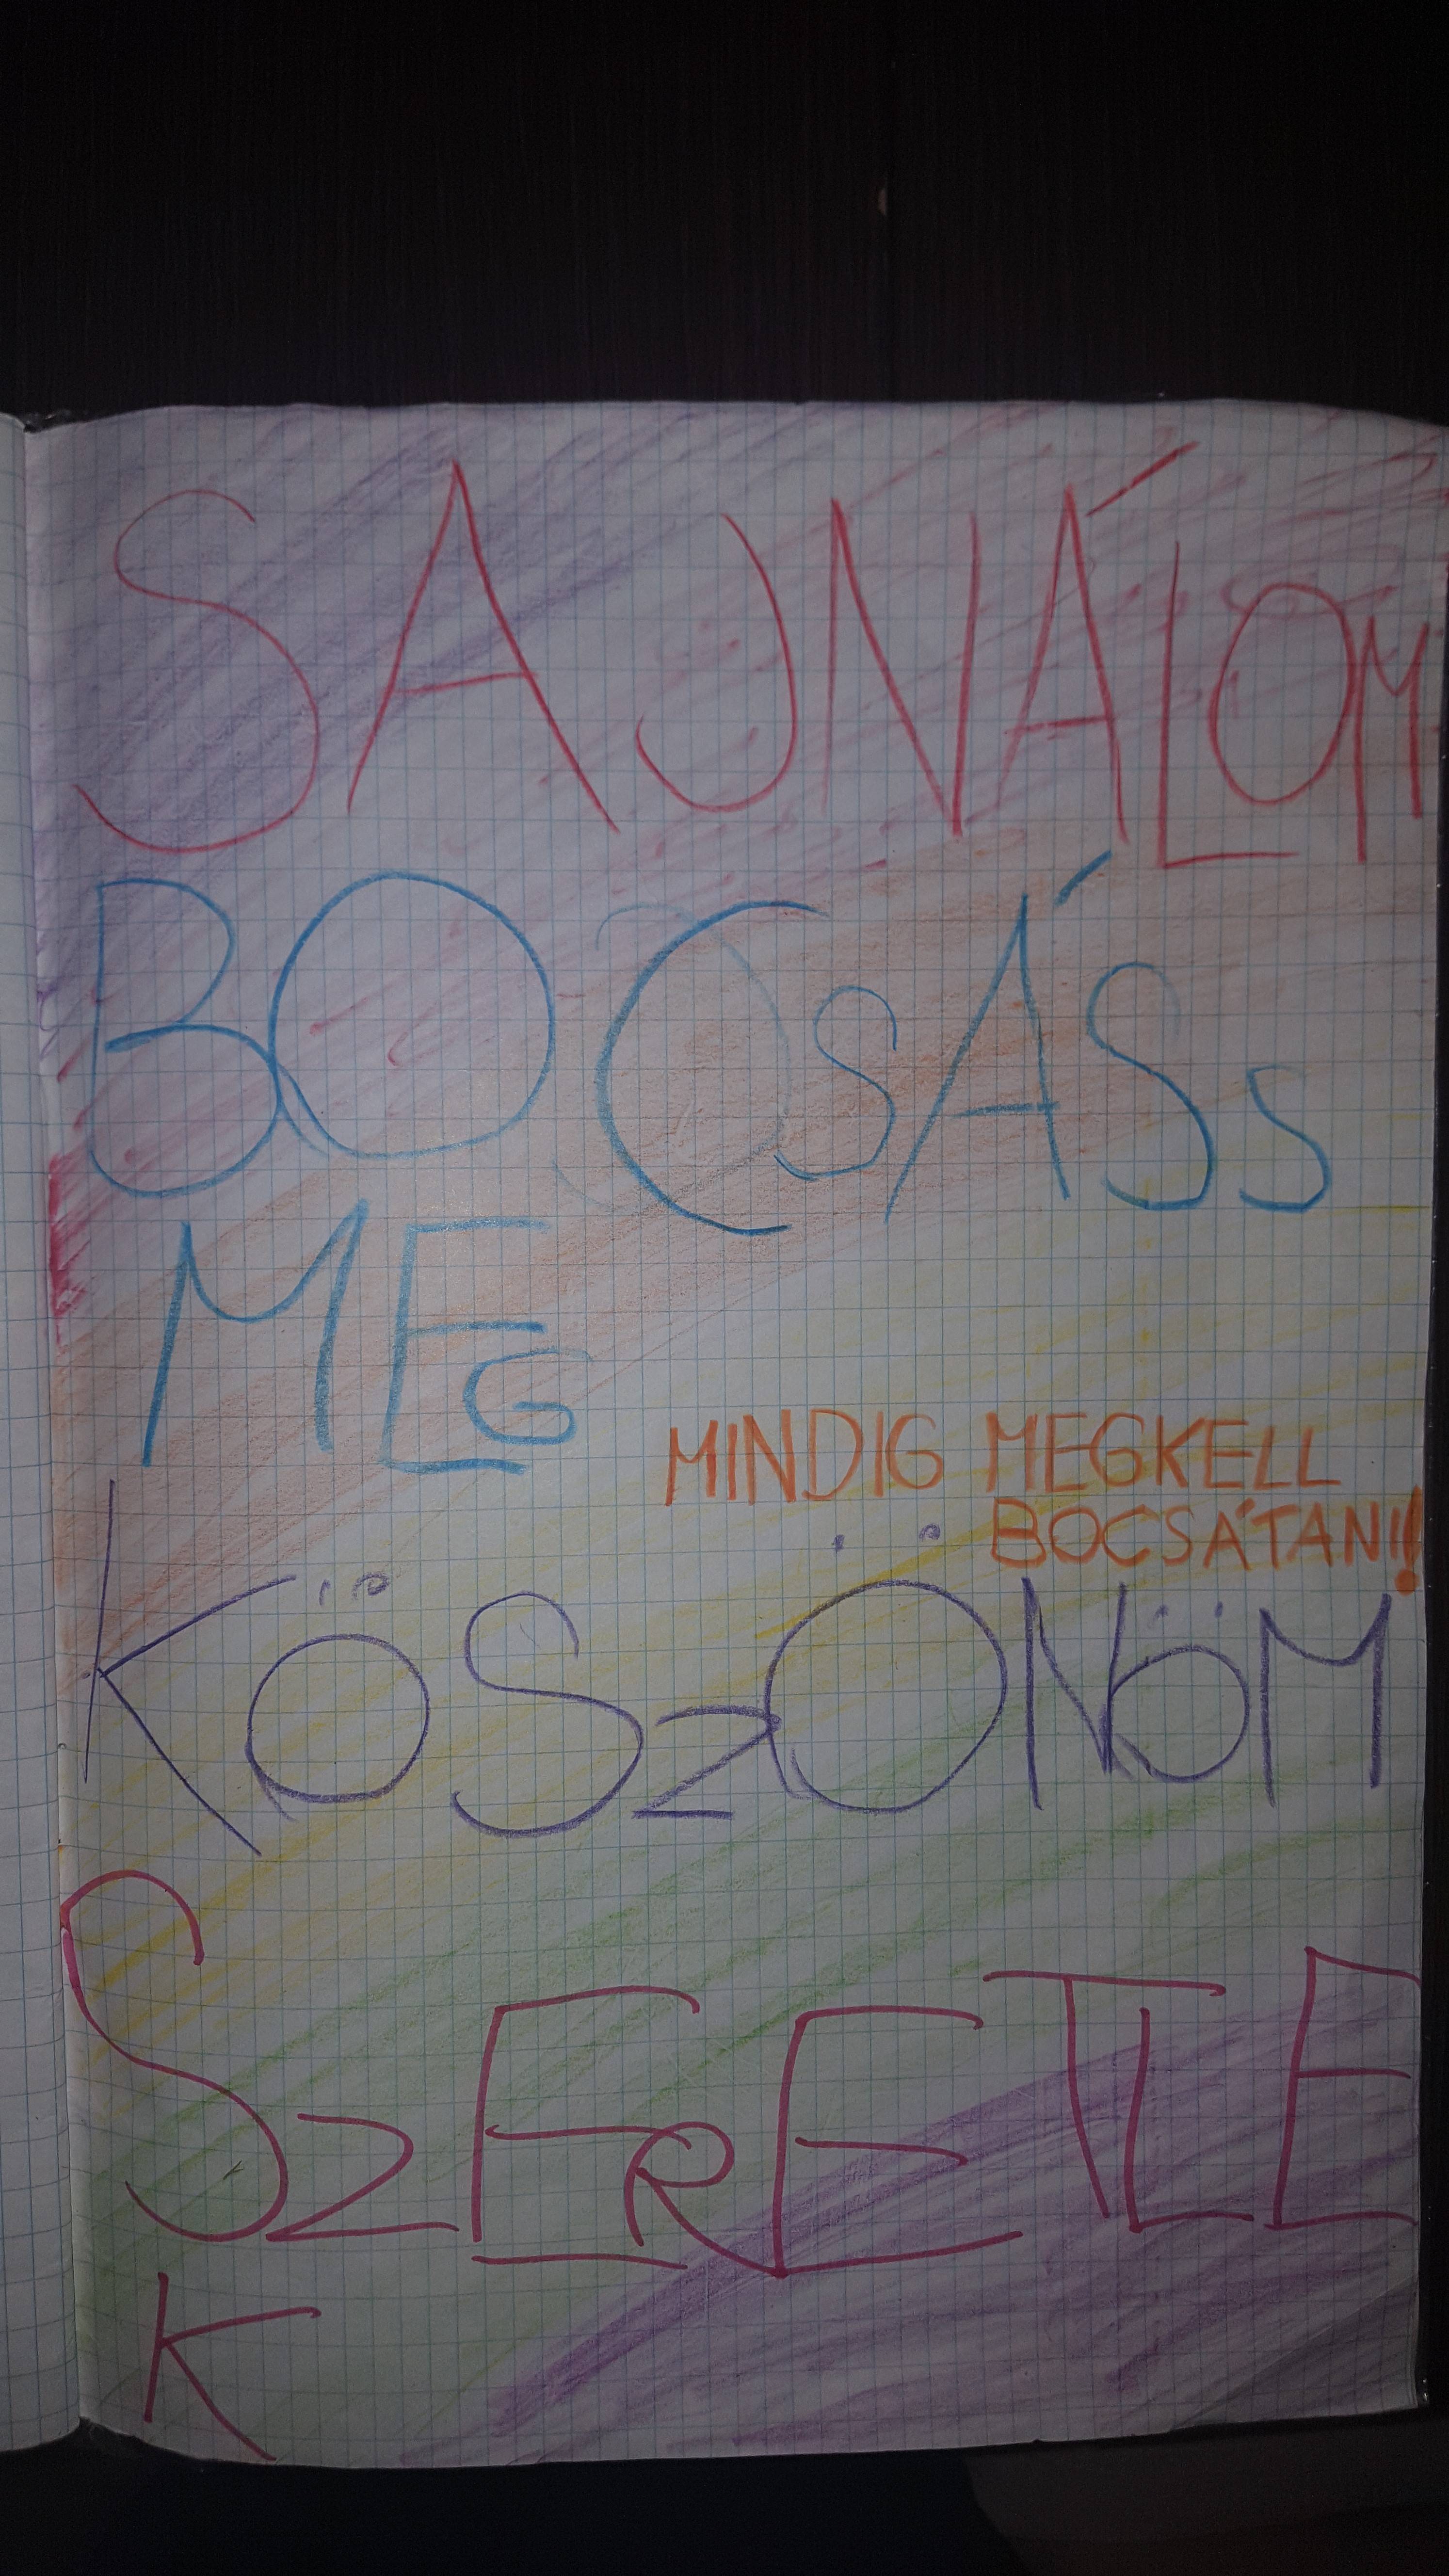 SAJNÁLOM
BOCSÁSS
MEG
MINDIG MEGKELL
BOCSÁTANI!
KÖSZÖNÖM
SZERETLE
K